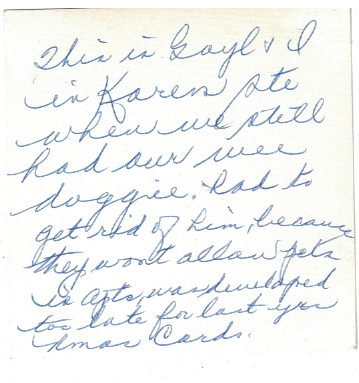 This is Gayl & I
in Karens pte
when we still
had our wee
doggie. Had to
get rid of him, because
they wont allow pets
in apts, was developed
too late for last yrs
Xmas Cards.